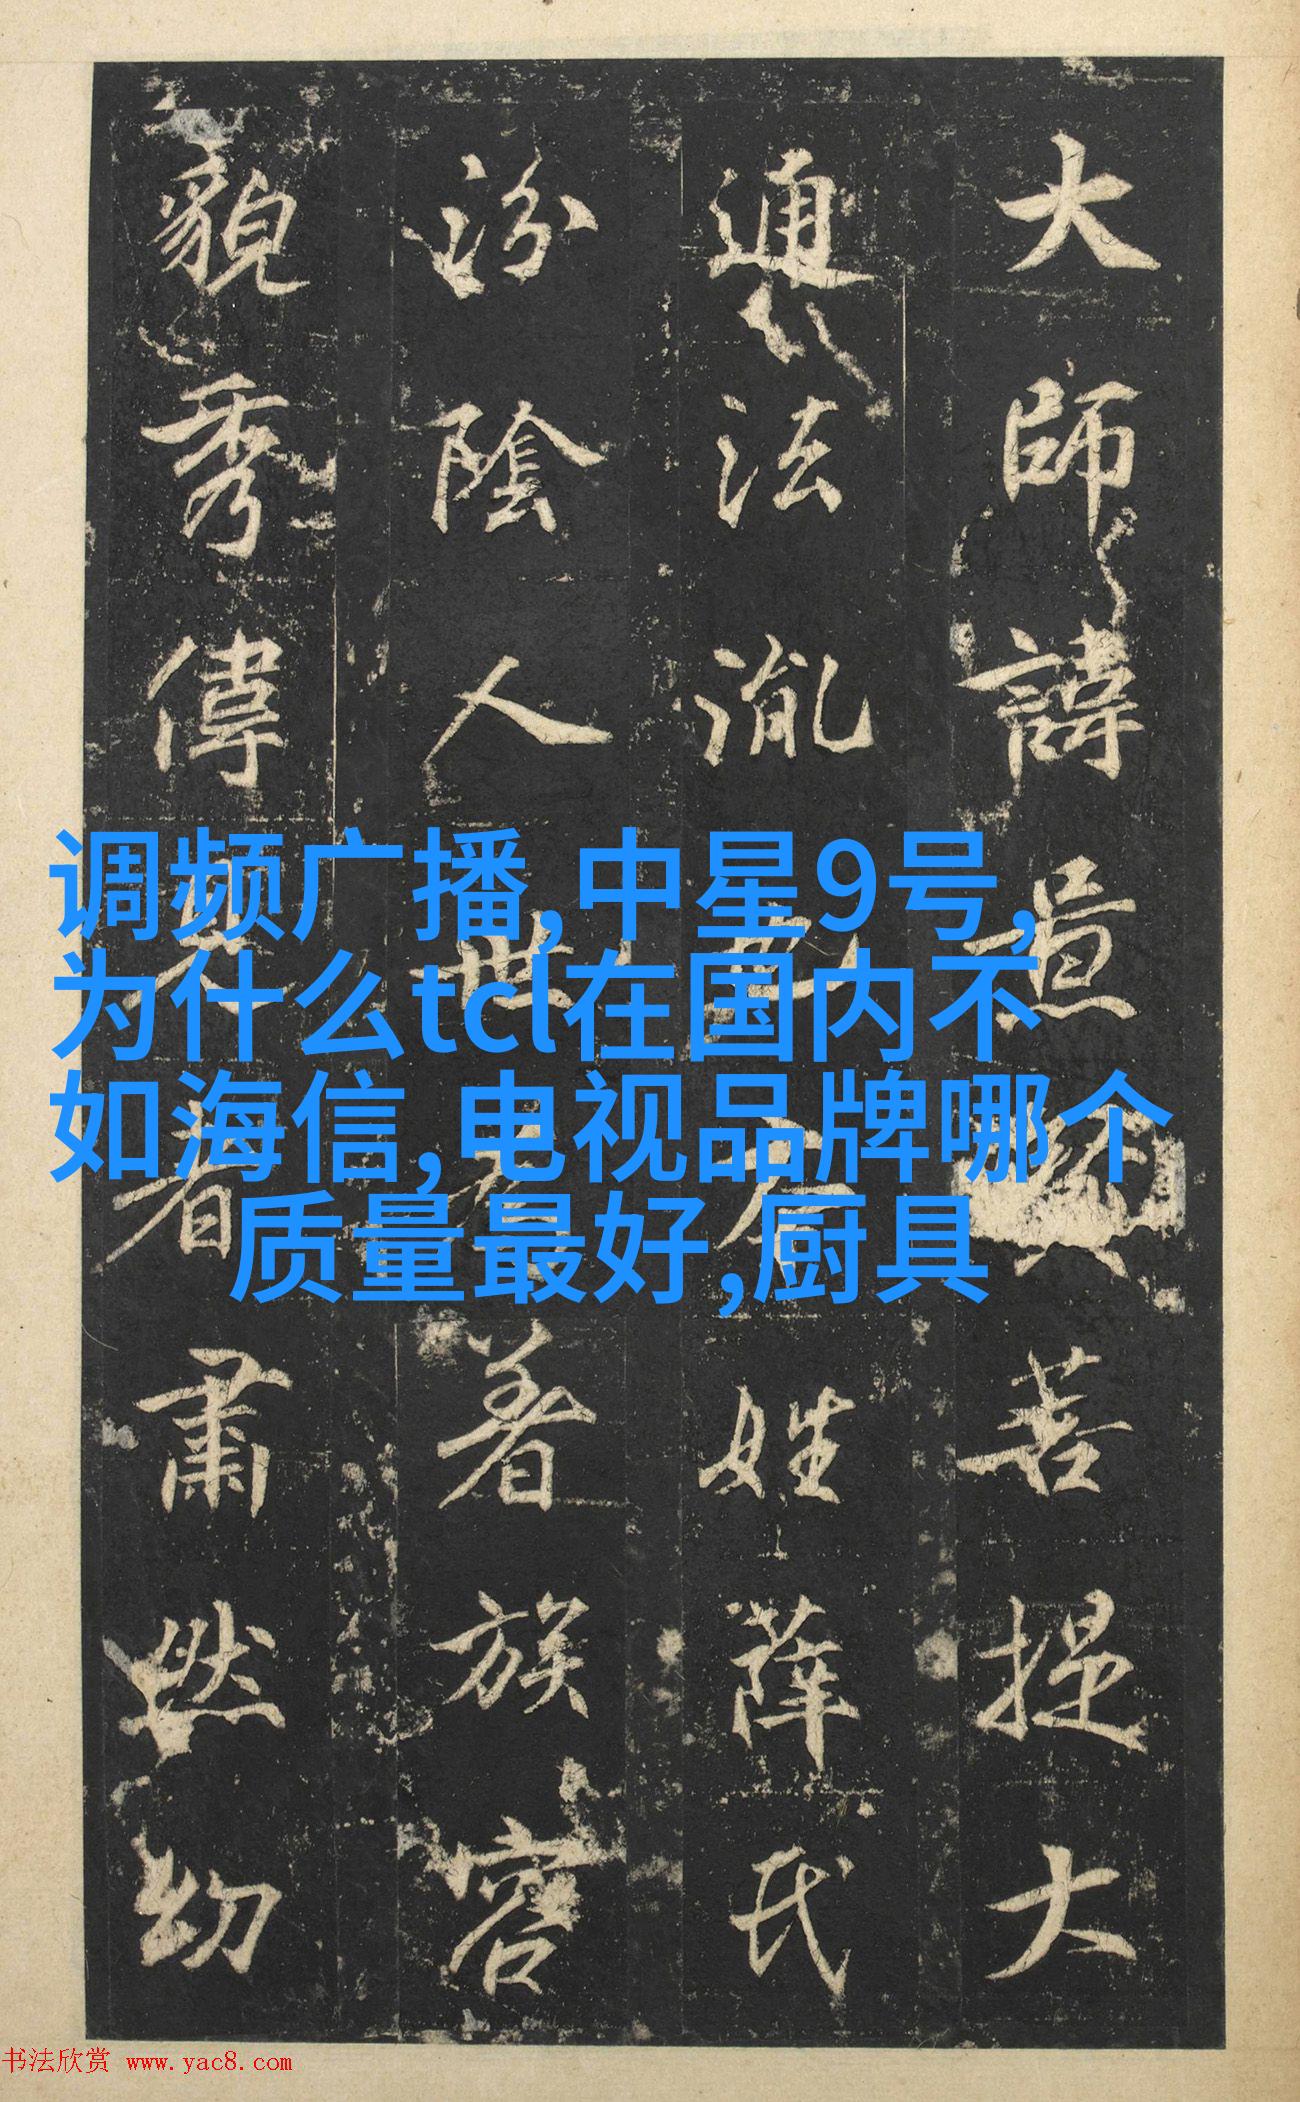 大師諱景賢菩提大
通法胤也右姓薛氏
汾陰人世為著族容
貌秀偉見者肅然幼
调频广播,中星9号,
为什么tcl在国内不
如海信,电视品牌哪个
质量最好,厨具
书法欣赏 www.yac8.com